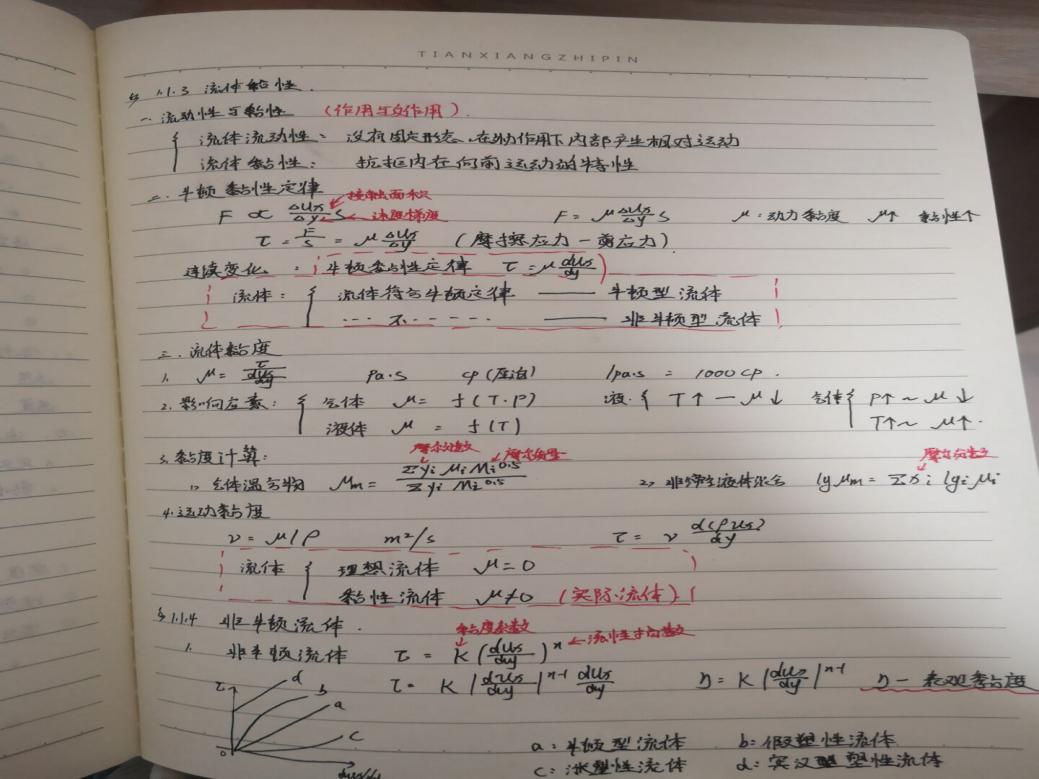 TIANXIANGZHIPIN
§ 1.1.3 流体黏性.
一. 流动性与黏性 (作用与反作用).
流体流动性: 没有固定形态、在外力作用下内部产生相对运动
流体黏性: 抗拒内在向前运动的特性
二. 牛顿黏性定律 接触面积
F ∝ Δus/Δy S ← 速度梯度 F = μ Δus/Δy S μ: 动力黏度 μ↑ 黏性↑
τ = F/S = μ Δus/Δy (摩擦应力—剪应力)
连续变化: 牛顿黏性定律 τ = μ dus/dy
流体: { 流体符合牛顿定律 —— 牛顿型流体
... 不 ..... —— 非牛顿型流体
三. 流体黏度
1. μ = τ / (dus/dy) Pa·s cp (厘泊) 1Pa·s = 1000 cp.
2. 影响因素: { 气体 μ = f(T·P) 液 { T↑ — μ↓ 气体 { P↑ ~ μ↓
液体 μ = f(T) T↑ ~ μ↑.
摩尔分数 摩尔质量 摩尔分数
3. 黏度计算:
1) 气体混合物 μm = Σ yi μi Mi^0.5 / Σ yi Mi^0.5 2) 非缔合液体混合 lg μm = Σ xi lgi μi
4. 运动黏度
ν = μ/ρ m²/s τ = ν d(ρus)/dy
流体 { 理想流体 μ=0
黏性流体 μ≠0 (实际流体)
§ 1.1.4 非牛顿流体. 黏度系数
1. 非牛顿流体 τ = K (dus/dy)^n ← 流性指数
τ = K |dus/dy|^n-1 dus/dy η = K |dus/dy|^n-1 η — 表观黏度
τ d b a c 0 dus/dy
a: 牛顿型流体 b: 假塑性流体
c: 涨塑性流体 d: 宾汉型塑性流体